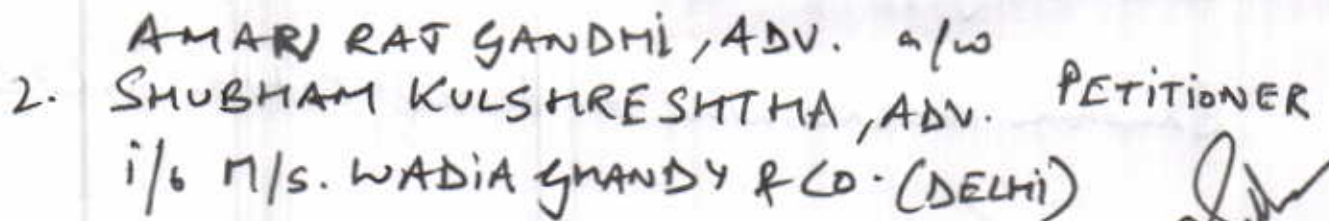 AMAR RAJ GANDHI, ADV. a/w
2. SHUBHAM KULSHRESHTHA, ADV. PETITIONER
i/b M/s. WADIA GHANDY & CO. (DELHI)